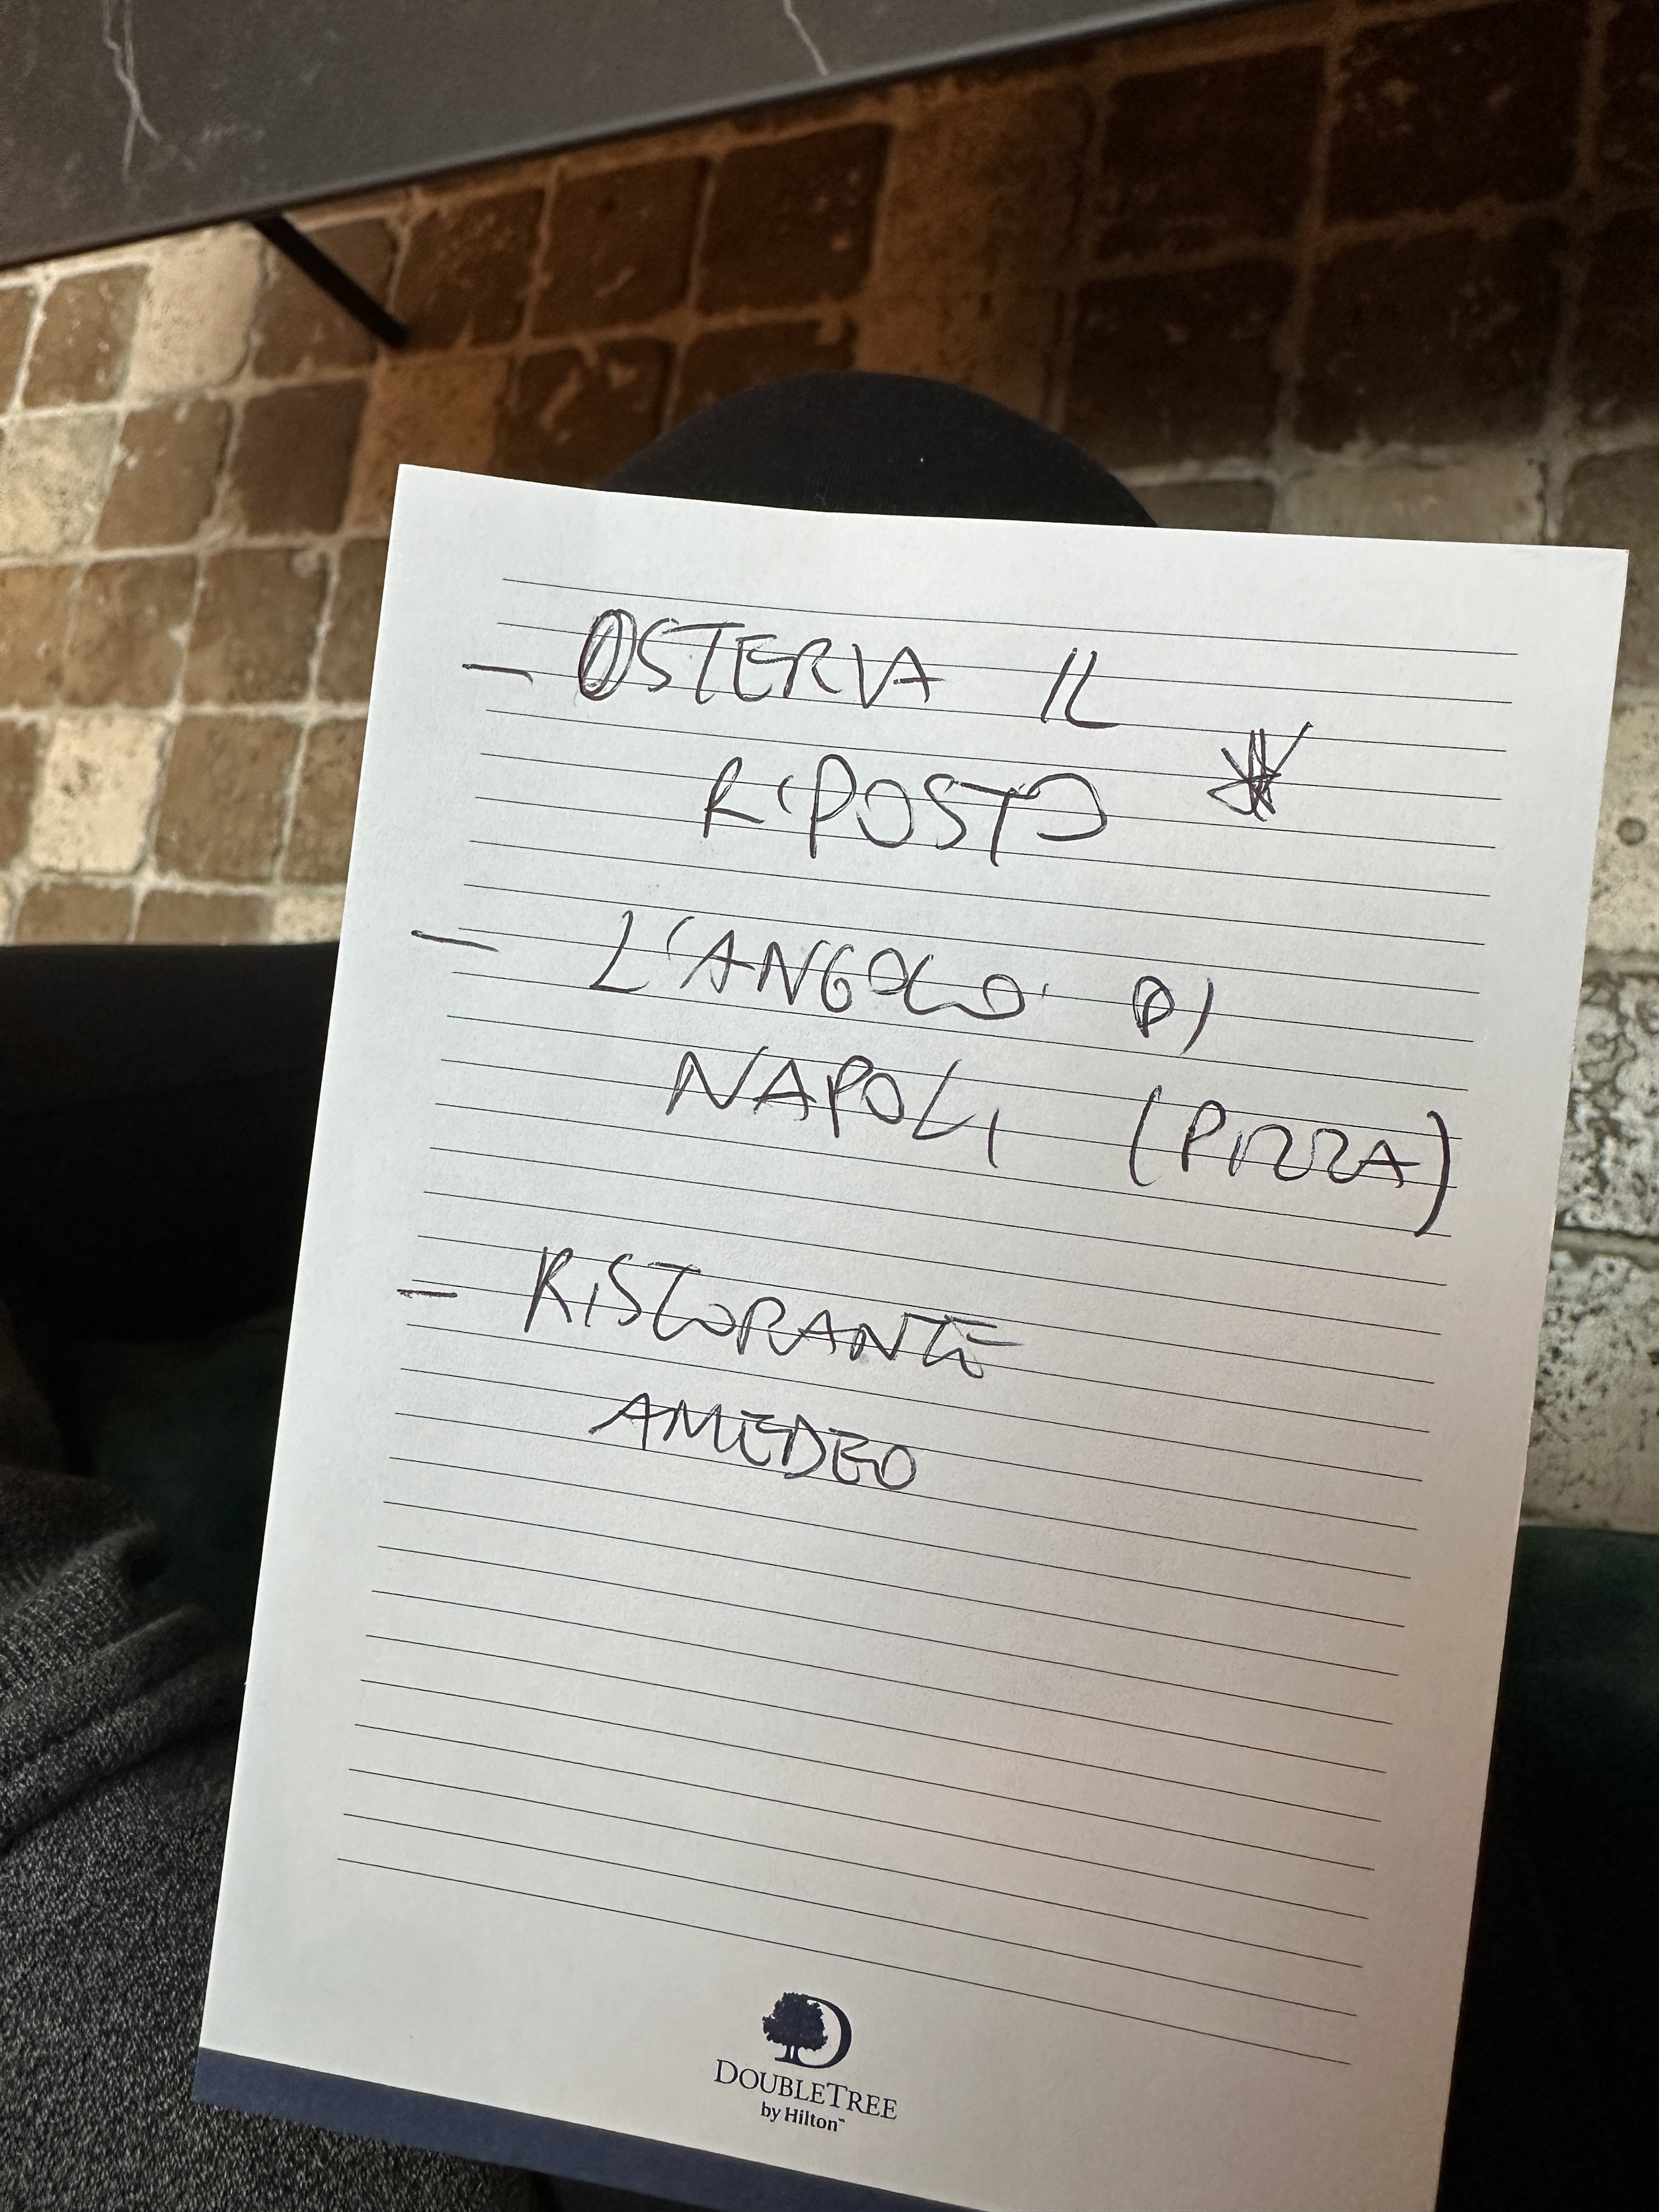 - OSTERIA IL
RIPOSTO
- L'ANGOLO DI
NAPOLI (PIZZA)
- RISTORANTE
AMEDEO
DOUBLETREE
by Hilton™